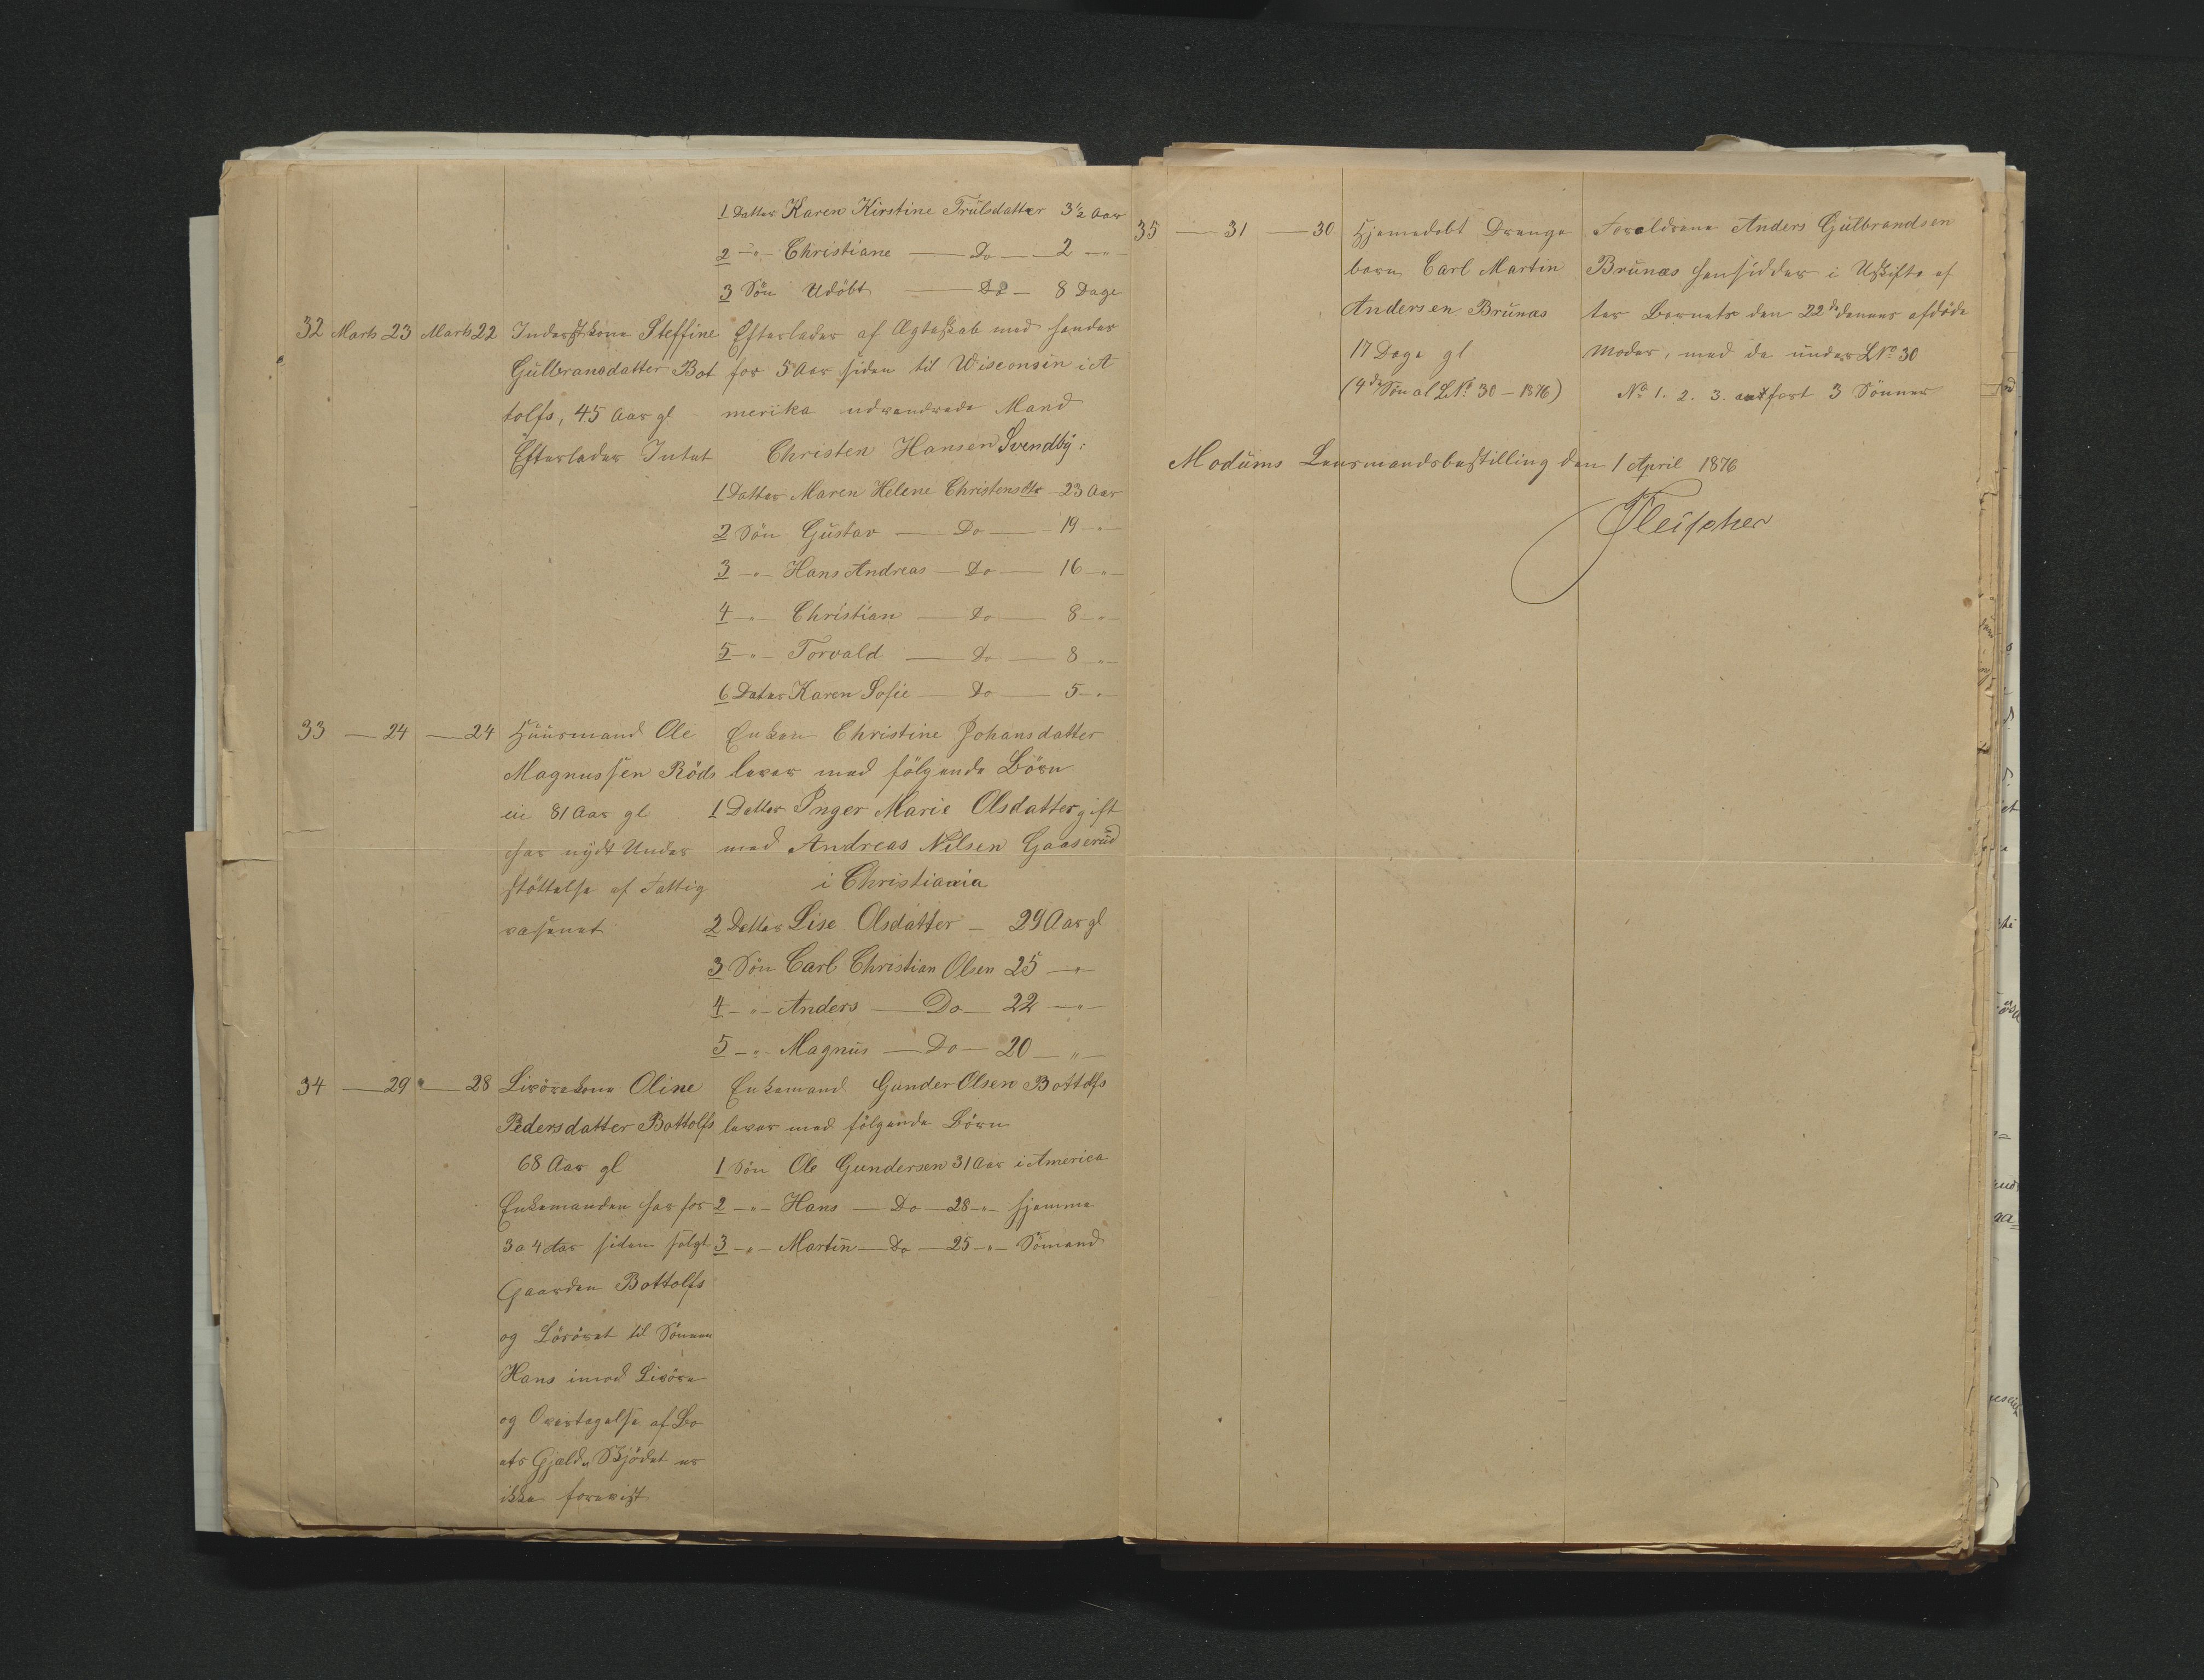 1 Datter Karen Kirstine Trulsdatter 3½ Aar
2 -"- Christiane — Do — 2 -"-
3 Sön Udöbt — Do — 8 Dage
32 Marts 23 Marts 22 Inderstkone Steffine Efterlader af Ægteskab med hendes
Gulbransdatter Bot for 5 Aar siden til Wisconsin i A
tolfs, 45 Aar gl merika udvandrede Mand
Efterlader Intet Christen Hansen Svendby:
1 Datter Maren Helene Christensdtr - 23 Aar
2 Sön Gustav — Do — 19 -"-
3 -"- Hans Andreas — Do — 16 -"-
4 -"- Christian — Do — 8 -"-
5 -"- Torvald — Do — 8 -"-
6 Datter Karen Sofie — Do — 5 -"-
33 — 24 — 24 Huusmand Ole Enken Christine Johansdatter
Magnussen Röds lever med fölgende Börn
eie 81 Aar gl 1 Datter Inger Marie Olsdatter gift
har nydt Under med Andreas Nilsen Gaaserud
stöttelse af Fattig i Christiania
væsenet 2 Datter Lise Olsdatter — 29 Aar gl
3 Sön Carl Christian Olsen 25 -"-
4 -"- Anders — Do — 22 -"-
5 -"- Magnus — Do — 20 -"-
34 — 29 — 28 Livörekone Oline Enkemand Gunder Olsen Bottolfs
Pedersdatter Bottolfs lever med fölgende Börn
68 Aar gl 1 Sön Ole Gundersen 31 Aar i America
Enkemanden har for 2 -"- Hans — Do — 28 -"- hjemme
3 a 4 Aar siden solgt 3 -"- Martin — Do — 25 -"- Sömand
Gaarden Bottolfs
og Lösöret til Sönnen
Hans imod Livöre
og Overtagelse af Bo
ets Gjæld. Skjödet er
ikke forevist
35 — 31 — 30 Hjemedöbt Drenge Forældrene Anders Gulbrandsen
barn Carl Martin Brunæs hensidder i Uskifte ef
Andersen Brunæs ter Barnets den 22de dennes afdöde
17 Dage gl Moder, med de under LNo 30
(4de Sön af LNo 30 - 1876) No 1. 2. 3. anfört 3 Sönner
Modums Lensmandsbestilling den 1 April 1876
Fleischer